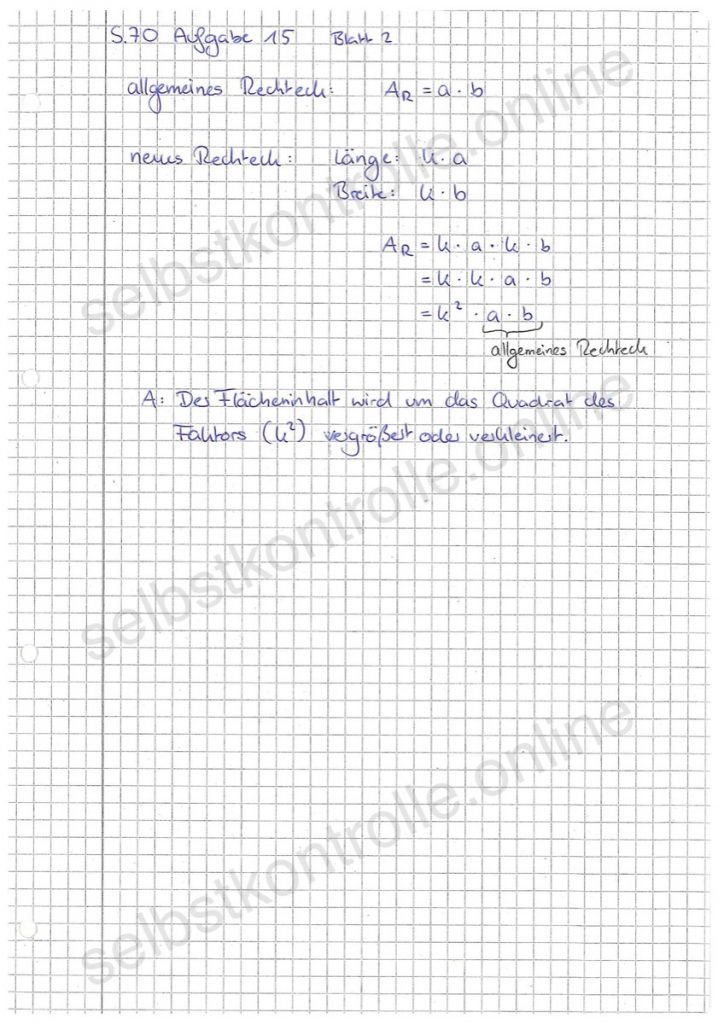 S.70 Aufgabe 15 Blatt 2
allgemeines Rechteck: A_R = a · b
neues Rechteck: Länge: k · a
Breite: k · b
A_R = k · a · k · b
= k · k · a · b
= k² · a · b
allgemeines Rechteck
A: Der Flächeninhalt wird um das Quadrat des
Faktors (k²) vergrößert oder verkleinert.
selbstkontrolle.online
selbstkontrolle.online
selbstkontrolle.online